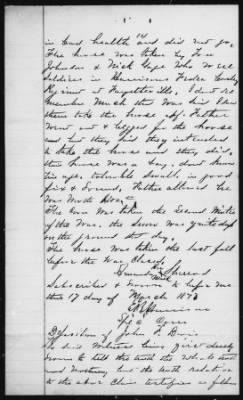 14
in bad health and did not go.
The horse was taken by Jno
Johnson & Nick Gage who were
Soldiers in Harrisons Federal Cavalry
Regiment at Fayetteville, I don't re
member much that was said when
them take the horse off. Father
went out & begged for the horse
and but they said they intended
to take the horse and they did,
the horse was a bay, don't know
his age, tolerable small, in good
fix & sound, Father allowed he
was worth
The Gun was taken the Second Winter
of the War, the snow was quite deep
on the ground that day.
The horse was taken the last fall
before the War Closed,
Sherrod
Subscribed & sworn to before me
this 17 day of March 187
Deposition of John F.
The said witness being first duly
sworn to tell the truth the whole truth
and nothing but the truth relative
to the above Claim testifies as follows